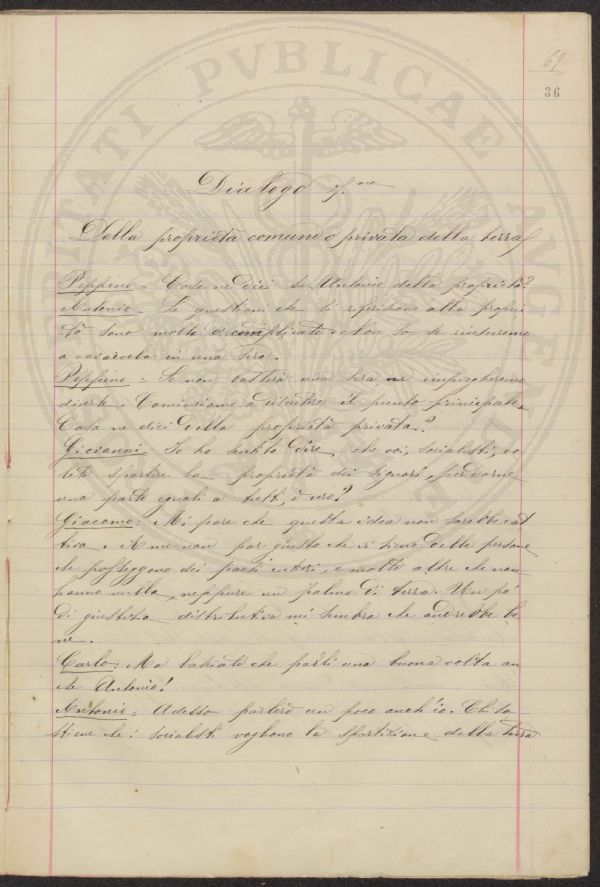 VTILITATI PVBLICAE AVGENDAE
69
36
Dialogo
Della proprietà comune o privata della terra
Peppino - Cosa ne dici tu Antonio della proprietà?
Antonio - Le questioni che si riferiscono alla propri
tà sono molte e complicate. Non so se riusciremo
a cavarcela in una sera.
Peppino - Se non basterà una sera ne impiegheremo
diverse. Cominciamo a discutere il punto principale.
Cosa ne dici della proprietà privata?
Giovanni. Io ho sentito dire che voi, socialisti, vo
lete spartire la proprietà dei signori, per darne
una parte eguale a tutti, è vero?
Giacomo: Mi pare che questa idea non sarebbe cat
tiva. A me non par giusto che vi siano delle persone
che posseggono dei paesi interi, e molte altre che non
hanno nulla, neppure un palmo di terra. Un pò
di giustizia distributiva mi sembra che andrebbe be
ne.
Carlo: Ma lasciate che parli una buona volta an
che Antonio!
Antonio: Adesso parlerò un poco anch'io. Chi so
stiene che i socialisti vogliono la spartizione della terra